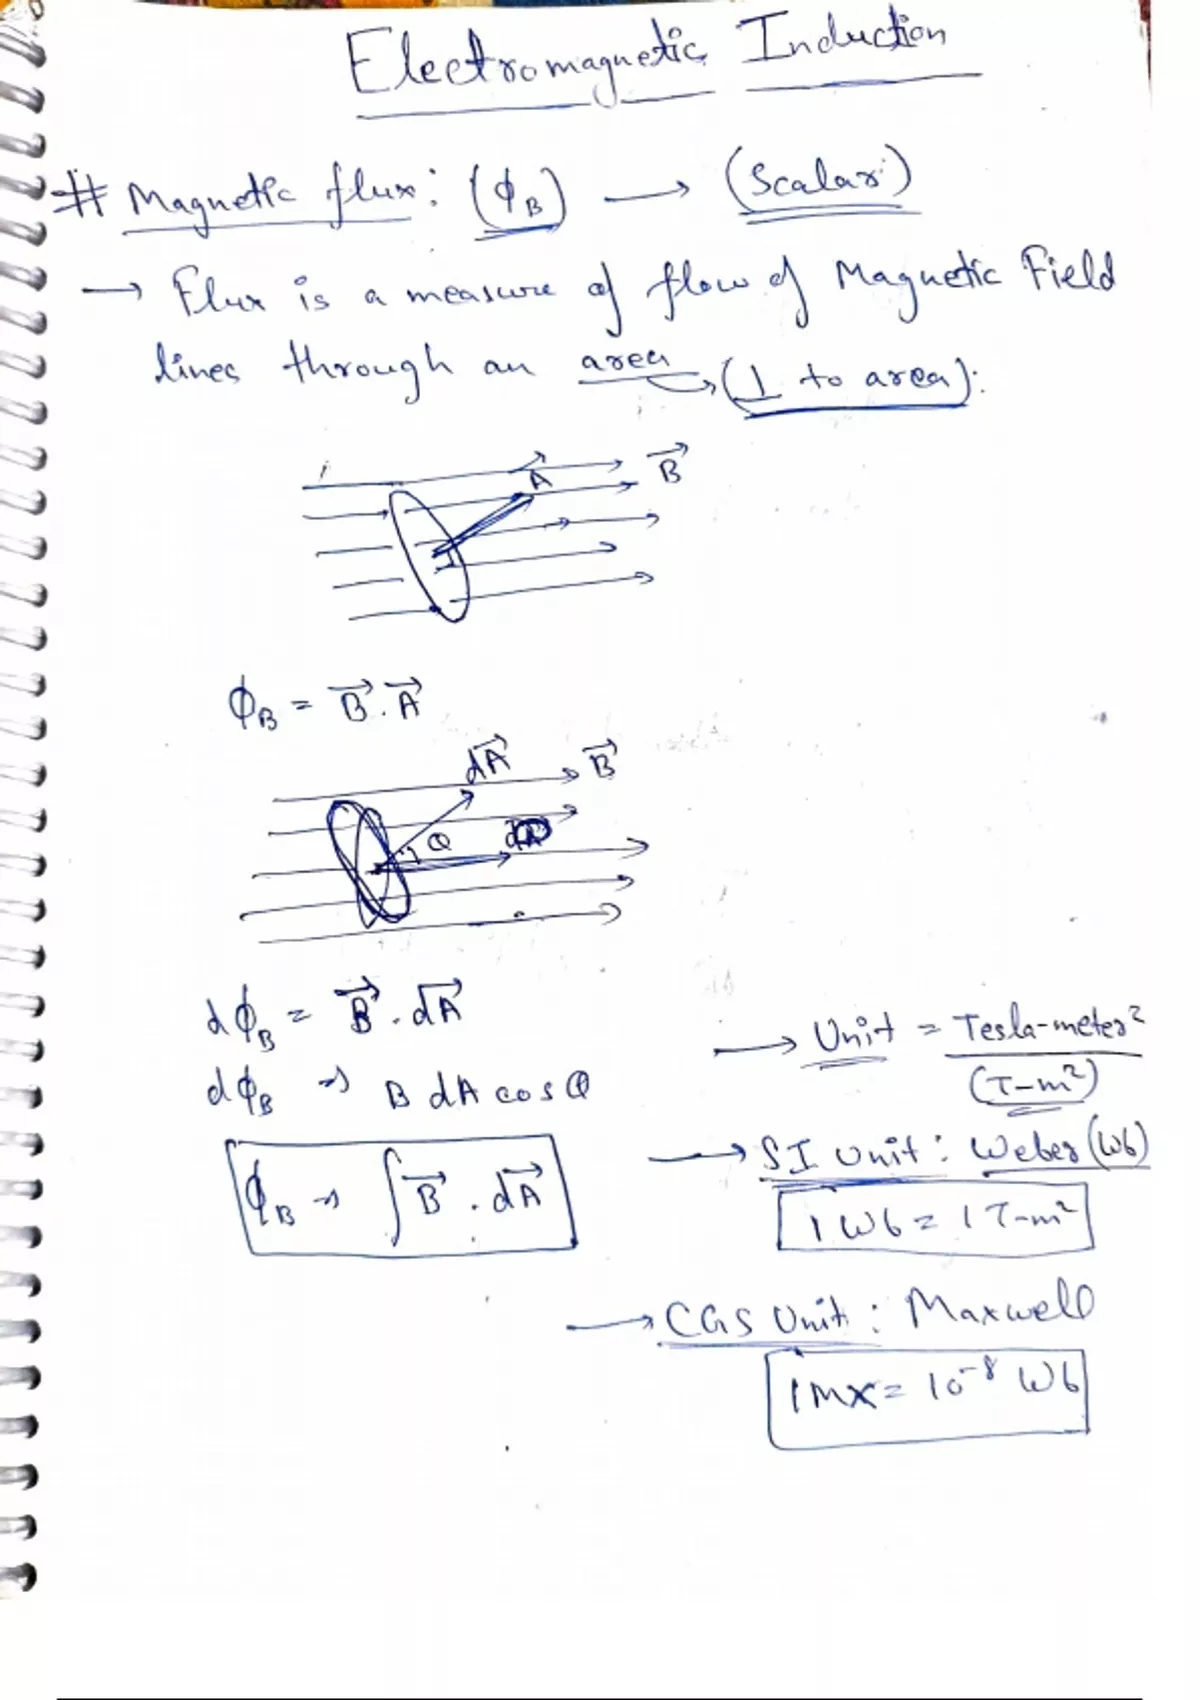 Electromagnetic Induction
# Magnetic flux: (ϕB) → (Scalar)
→ Flux is a measure of flow of Magnetic Field
lines through an area → (⊥ to area):
A B⃗
ϕB = B⃗ . A⃗
dA⃗ B⃗
θ
dϕB = B⃗ . dA⃗
→ Unit = Tesla-meter²
(T-m²)
dϕB ⇒ B dA cos θ
→ SI Unit: Weber (Wb)
ϕB ⇒ ∫ B⃗ . dA⃗
1 Wb = 1 T-m²
→ CGS Unit: Maxwell
1 Mx = 10⁻⁸ Wb